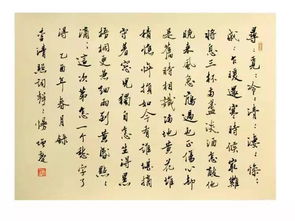 尋〻覓〻冷〻清〻淒〻惨〻
戚〻乍暖還寒時候最難
将息三杯兩盏淡酒怎敵他
晚来風急雁過也正傷心却
是舊時相識滿地黄花堆
積憔悴損如今有誰堪摘
守着窗兒獨自怎生得黑
梧桐更兼细雨到黄昏點〻
滴〻這次第怎一個愁字了
得 乙酉年春月録
李清照詞聲〻慢